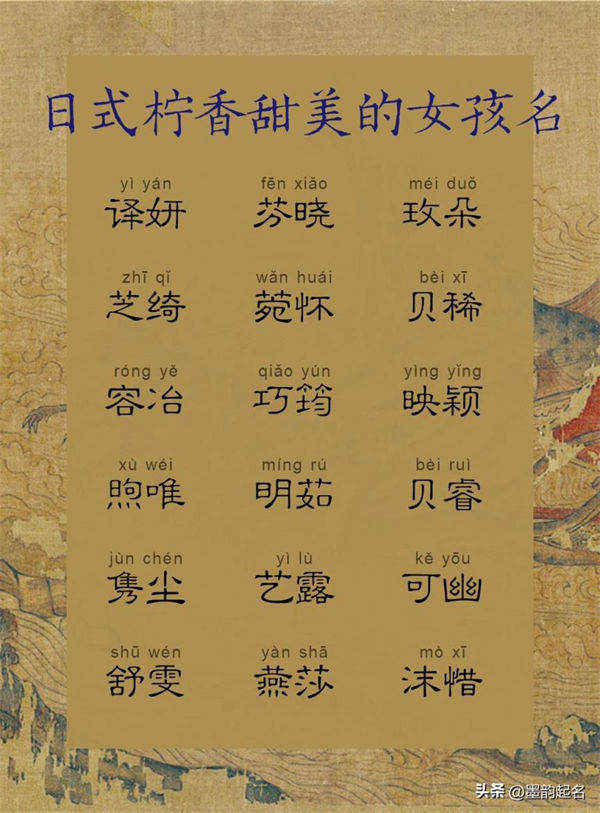 日式柠香甜美的女孩名
yì yán fēn xiǎo méi duǒ
译妍 芬晓 玫朵
zhī qǐ wǎn huái bèi xī
芝绮 菀怀 贝稀
róng yě qiǎo yún yìng yǐng
容冶 巧筠 映颖
xù wéi míng rú bèi ruì
煦唯 明茹 贝睿
jùn chén yì lù kě yōu
隽尘 艺露 可幽
shū wén yàn shā mò xī
舒雯 燕莎 沫惜
头条 @墨韵起名